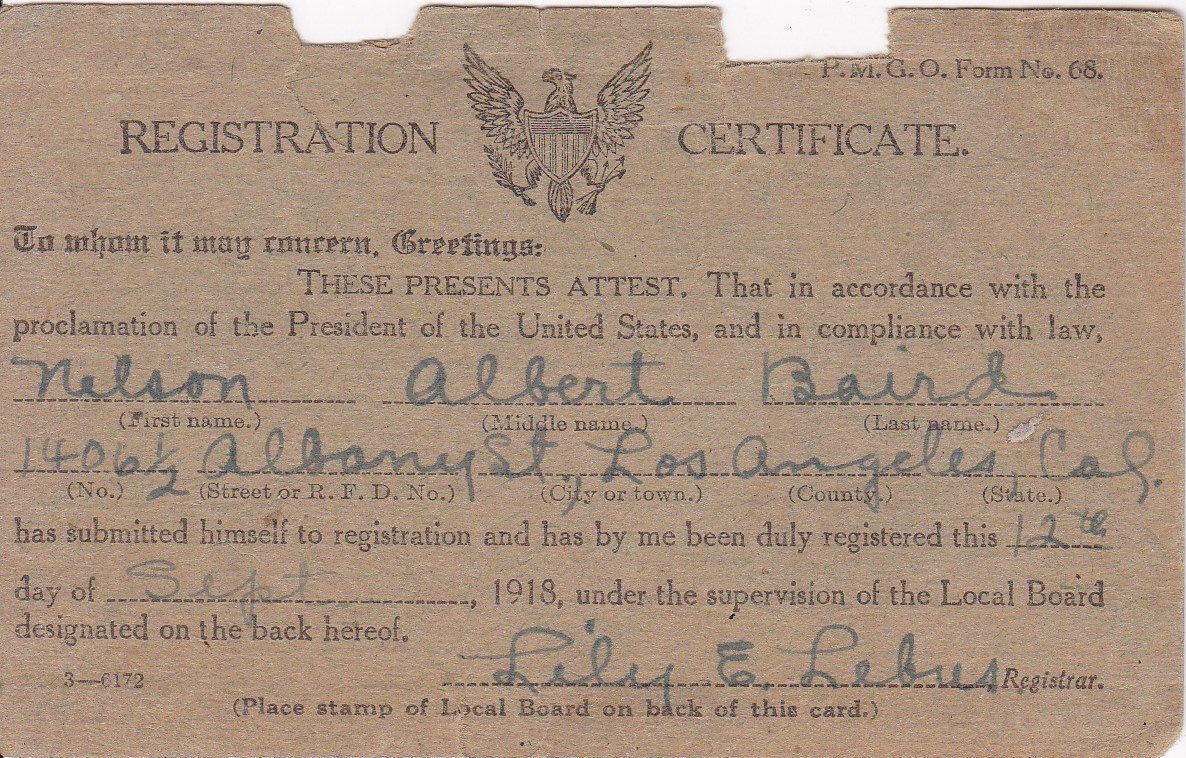 P. M. G. O. Form No. 68.
REGISTRATION CERTIFICATE.
To whom it may concern, Greetings:
THESE PRESENTS ATTEST, That in accordance with the
proclamation of the President of the United States, and in compliance with law,
Nelson Albert Baird
(First name.) (Middle name.) (Last name.)
1406 1/2 Albany St., Los Angeles, Cal.
(No.) (Street or R. F. D. No.) (City or town.) (County.) (State.)
has submitted himself to registration and has by me been duly registered this 12th
day of Sept, 1918, under the supervision of the Local Board
designated on the back hereof.
Lily E. Lebus Registrar.
3—6172
(Place stamp of Local Board on back of this card.)